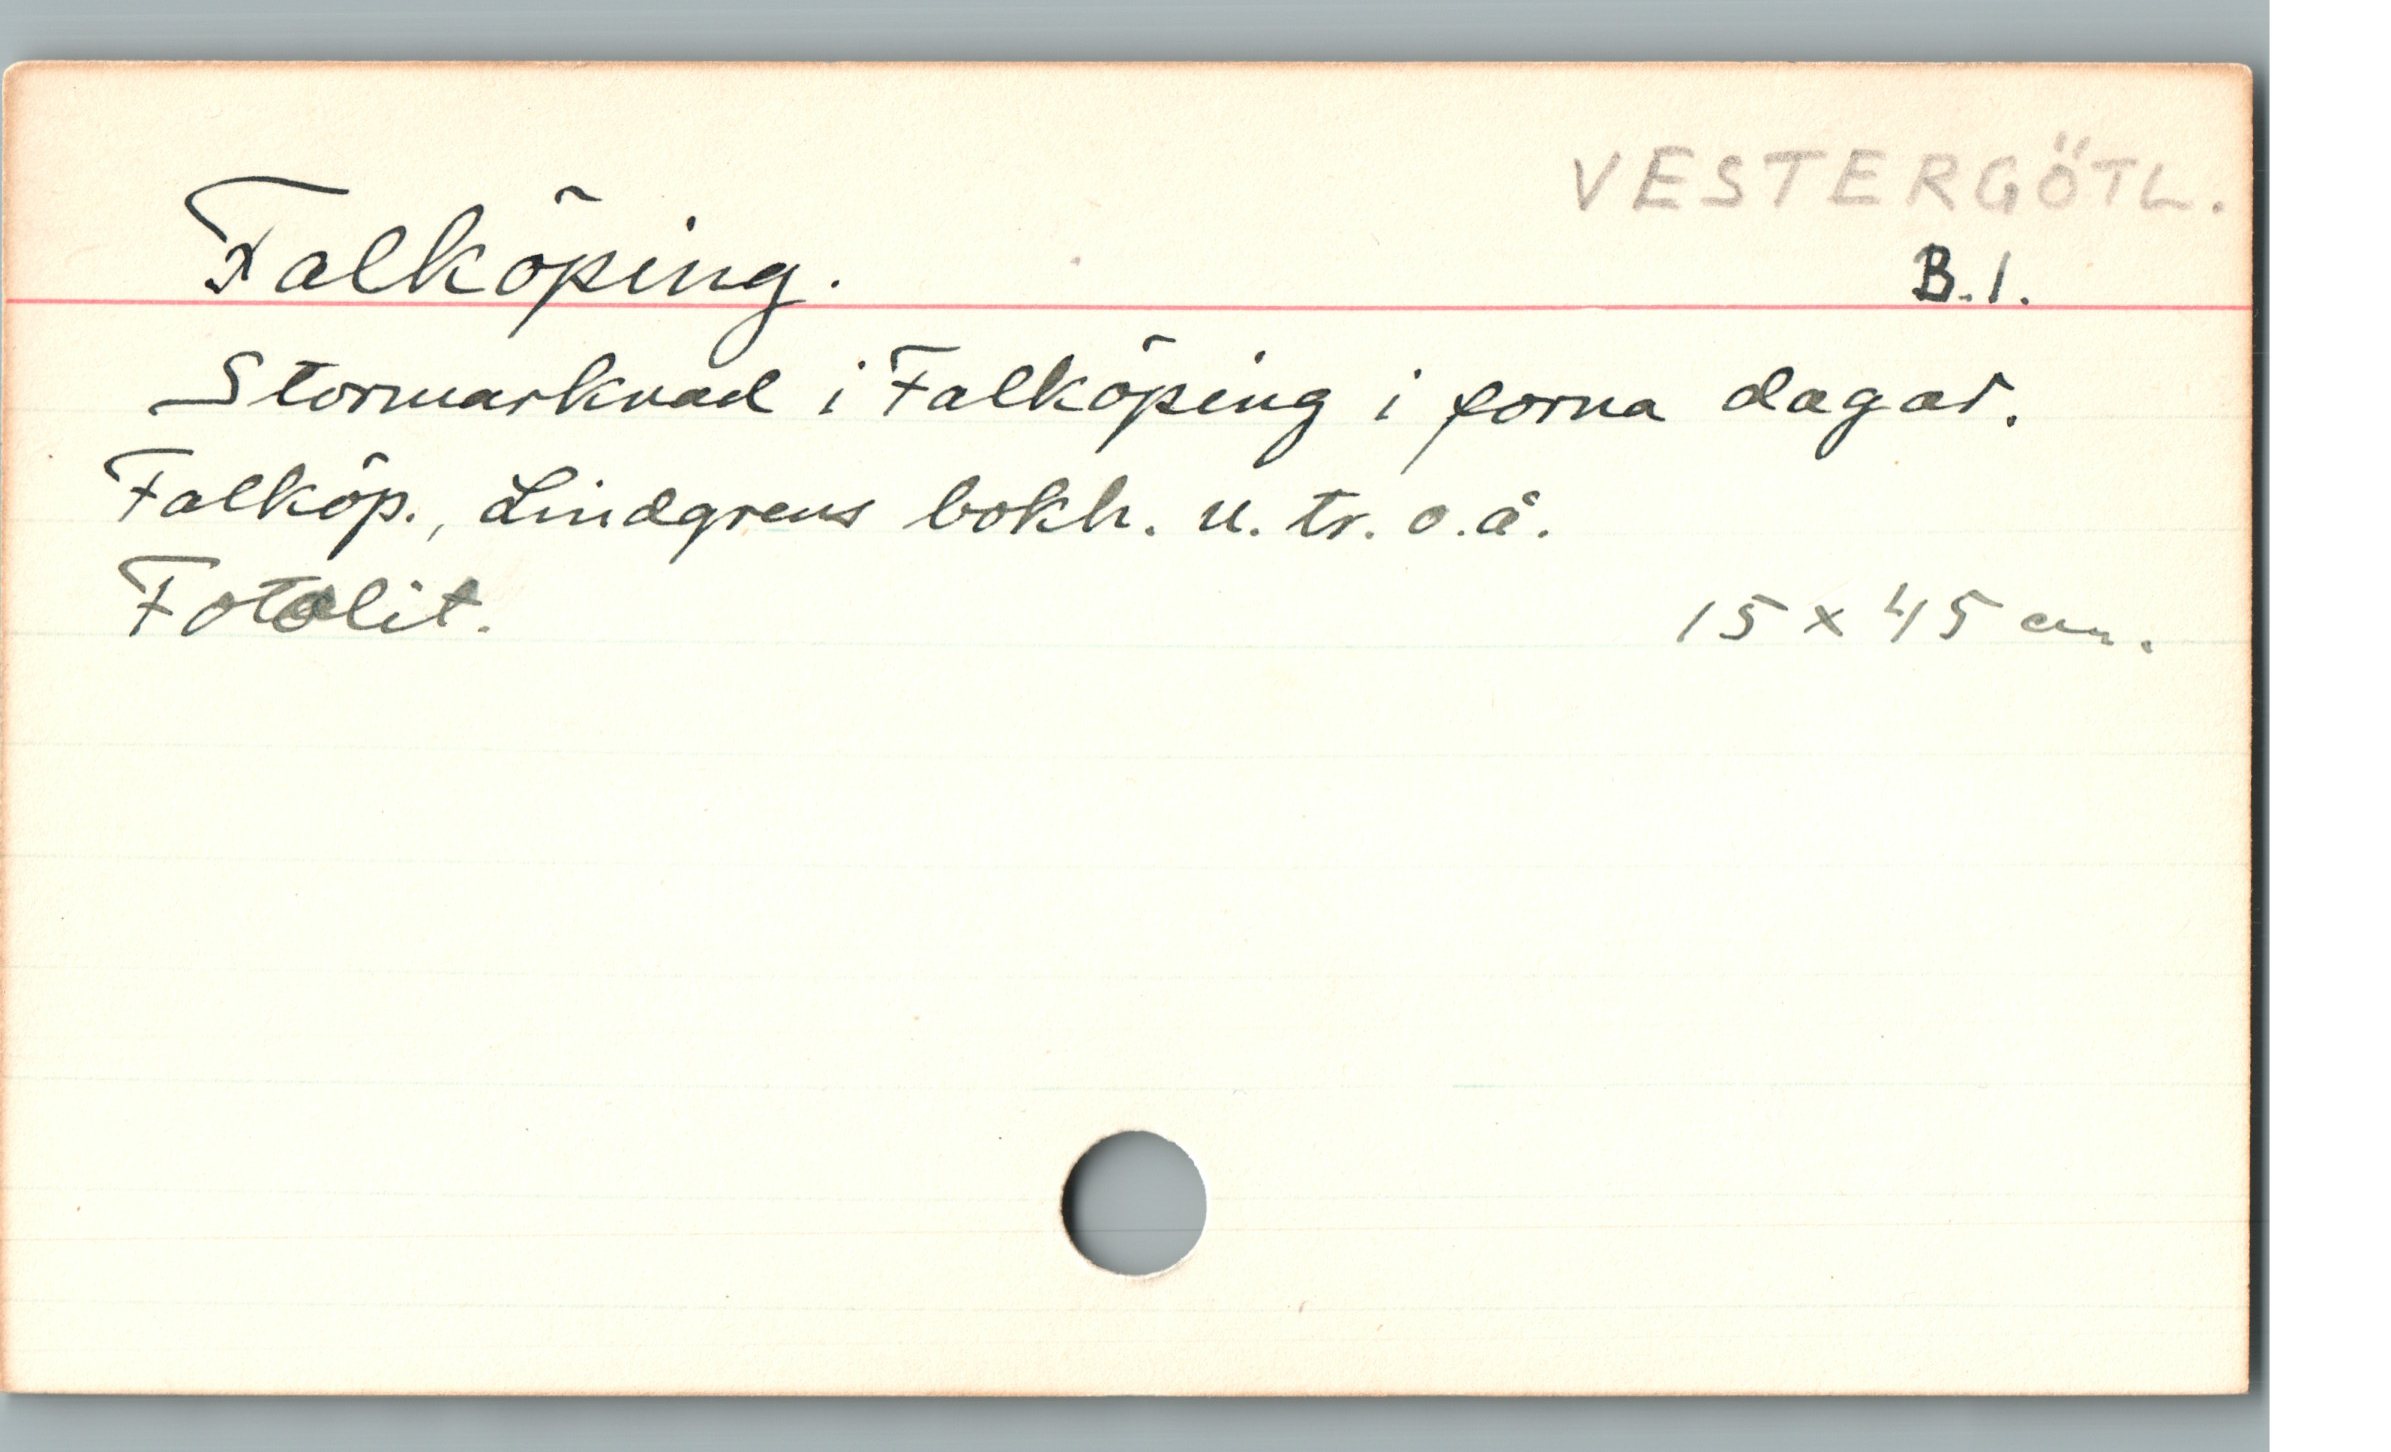 VESTERGÖTL.
Falköping. B.1.
Stormarknad i Falköping i forna dagar.
Falköp., Lindgrens bokh. u. tr. o.å.
Fotolit. 15 x 45 cm.